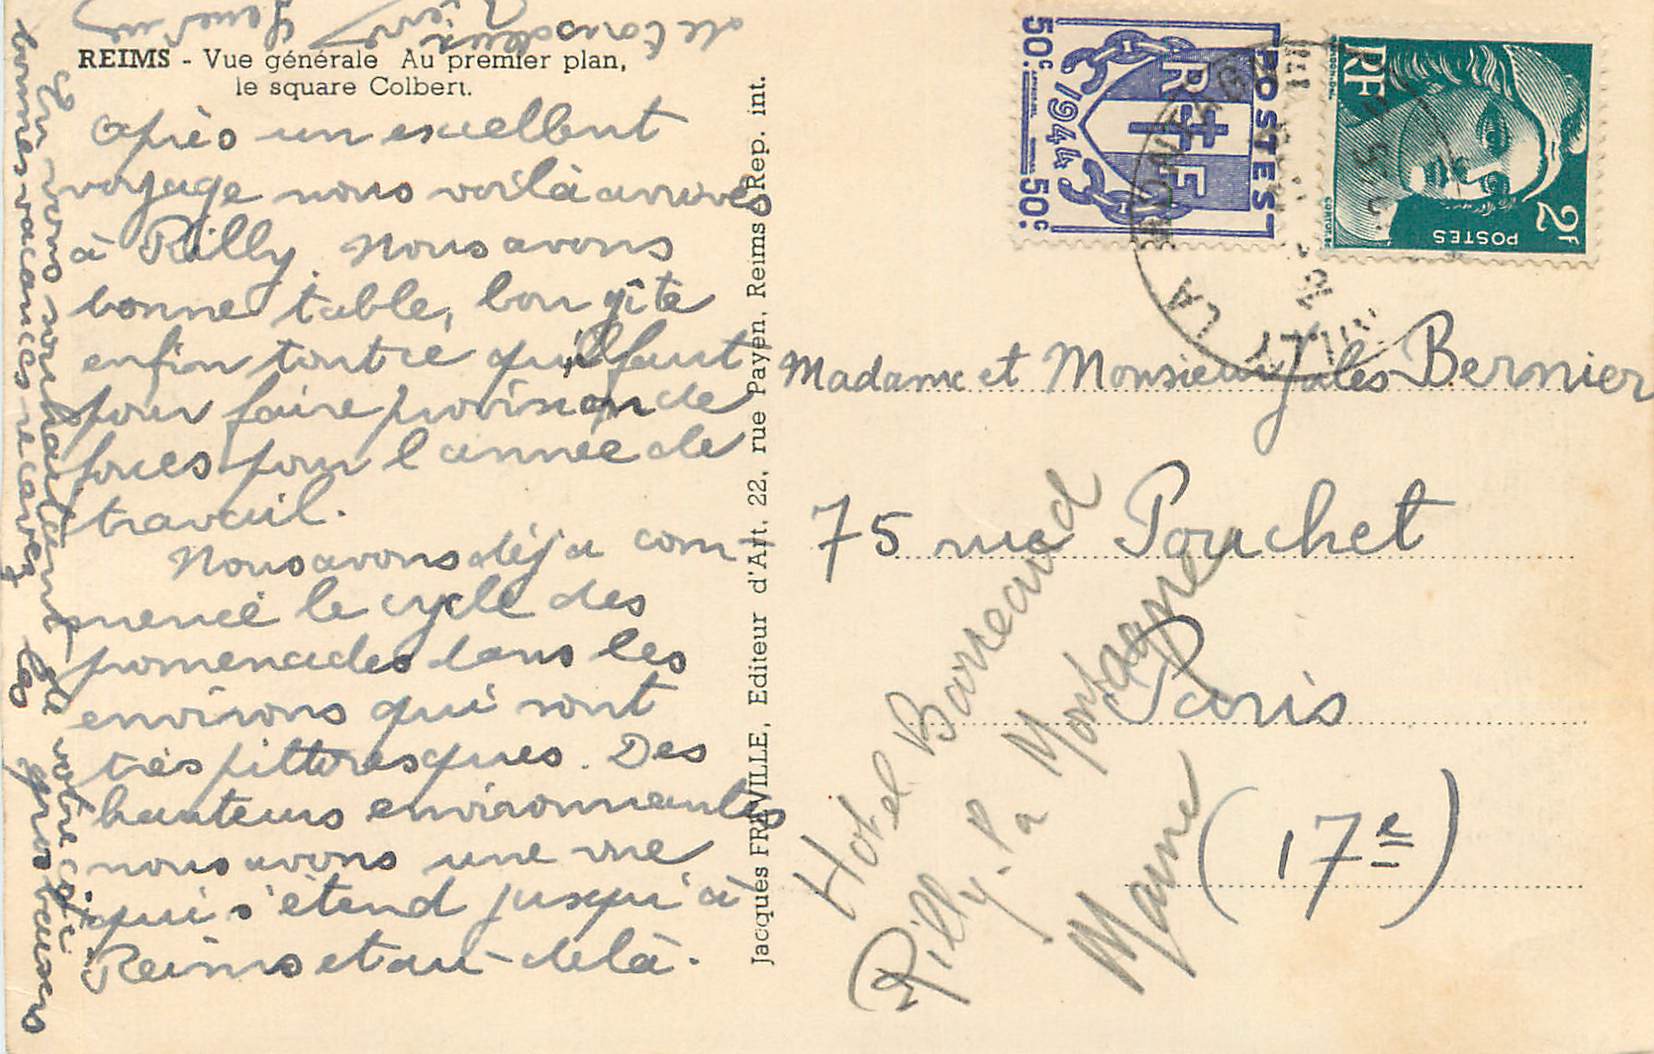 REIMS - Vue générale Au premier plan,
le square Colbert.
Après un excellent
voyage nous voilà arrivés
à Rilly. Nous avons
bonne table, bon gîte
enfin tout ce qu'il faut
pour faire provision de
forces pour l'année de
travail.
Nous avons déjà com-
mencé le cycle des
promenades dans les
environs qui sont
très pittoresques. Des
hauteurs environnantes
nous avons une vue
qui s'étend jusqu'à
Reims et au-delà.
En vous souhaitant, de votre côté,
bonnes vacances recevez les gros baisers
de tous deux
Jacques FRÉVILLE, Editeur d'Art, 22, rue Payen, Reims Rep. int.
50c POSTES 50c
1944
RF
RF
2F
POSTES
RILLY LA MONTAGNE
Madame et Monsieur Jules Bernier
75 rue Pouchet
Paris
(17e)
Hotel Barreaud
Rilly-la Montagne
Marne